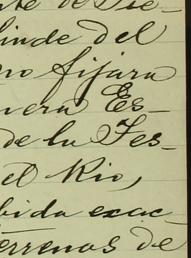 nte de Die-
linde del
no fijara
nera Es-
de la Tes-
el Rio,
bida exac-
terrenos de